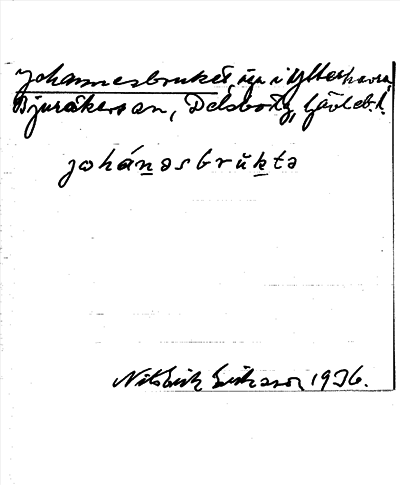 Johannesbruket, äga i Ytterhavra
Bjuråkers sn, Delsbo tg, Gävleb. l.
johánəsbrŭktə
Nils Erik Eriksson 1936.